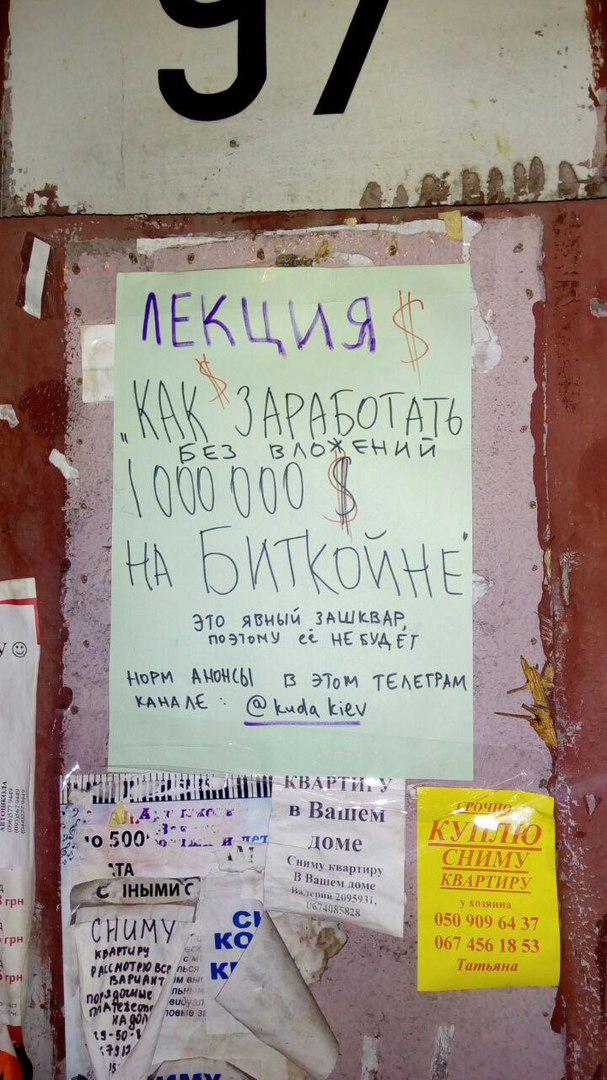 97
ЛЕКЦИЯ $
$
„КАК ЗАРАБОТАТЬ
БЕЗ ВЛОЖЕНИЙ
1 000 000 $
НА БИТКОЙНЕ"
ЭТО ЯВНЫЙ ЗАШКВАР,
ПОЭТОМУ ЕЁ НЕ БУДЕТ
НОРМ АНОНСЫ В ЭТОМ ТЕЛЕГРАМ
КАНАЛЕ: @kudakiev
АВТОШКОЛА
грн
грн
грн
КВАРТИРУ
в Вашем
доме
Сниму квартиру
В Вашем доме
Валерий 2095931,
0674085828
СРОЧНО
КУПЛЮ
СНИМУ
КВАРТИРУ
у хозяина
050 909 64 37
067 456 18 53
Татьяна
500
СНИМУ
КВАРТИРУ
РАССМОТРЮ ВСЕ
ВАРИАНТ
ПОРЯДОЧНЫЕ